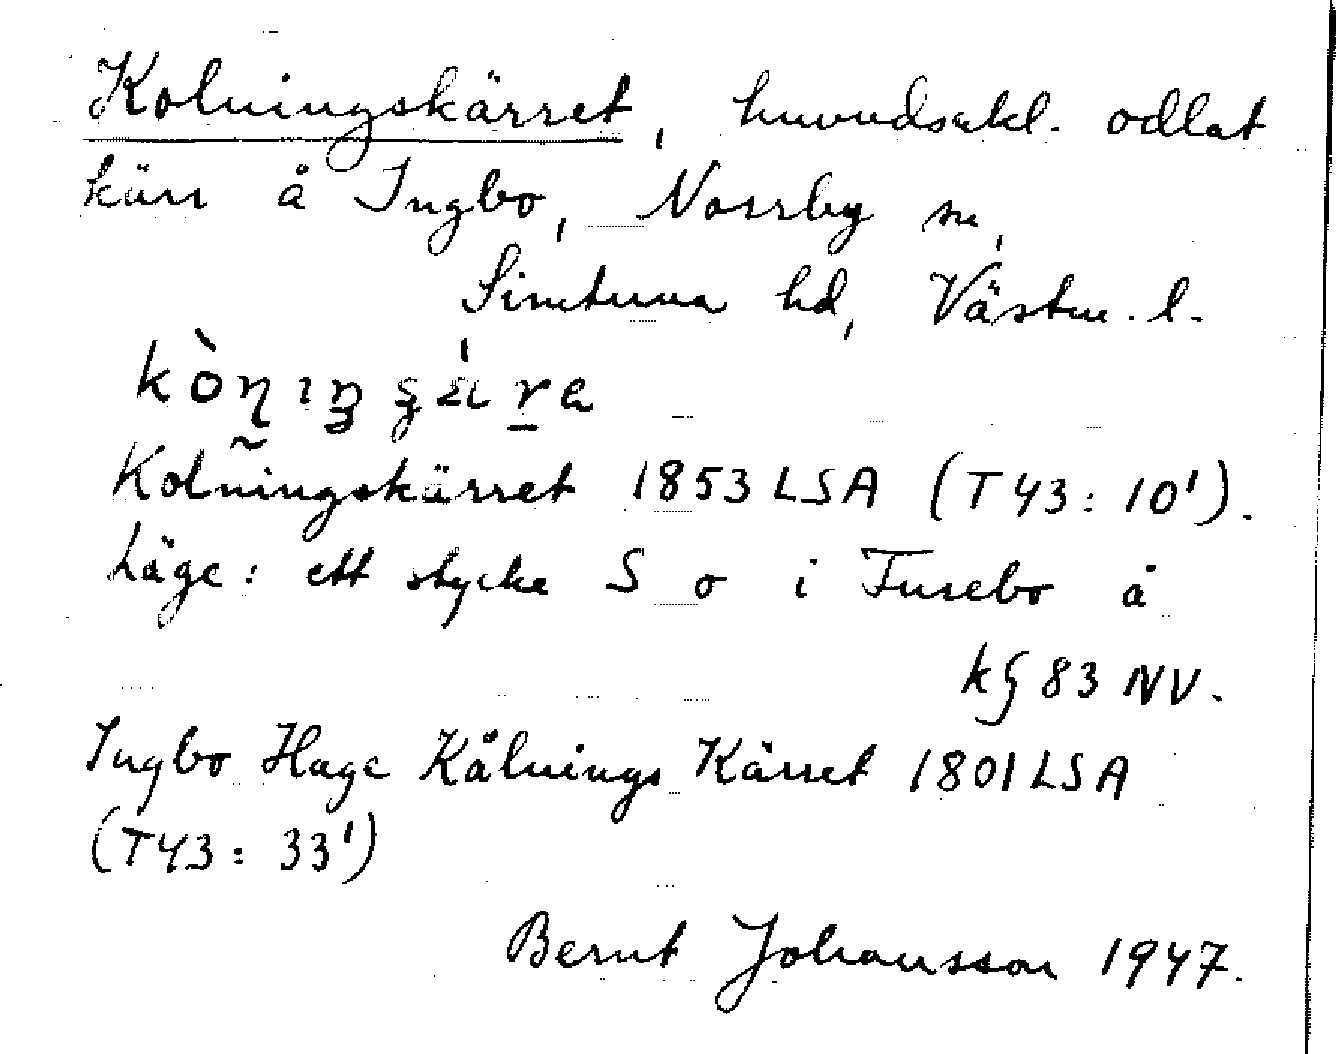 Kolningskärret, huvudsakl. odlat
kärr å Ingbo, Norrby sn,
Simtuna hd, Västm. l.
Kolñingskärret 1853 LSA (T43: 10').
Läge: ett stycke S o i Fusebo å
k§ 83 NV.
Ingbo Hage Kålnings Kärret 1801 LSA
(T43: 33')
Bernt Johansson 1947.